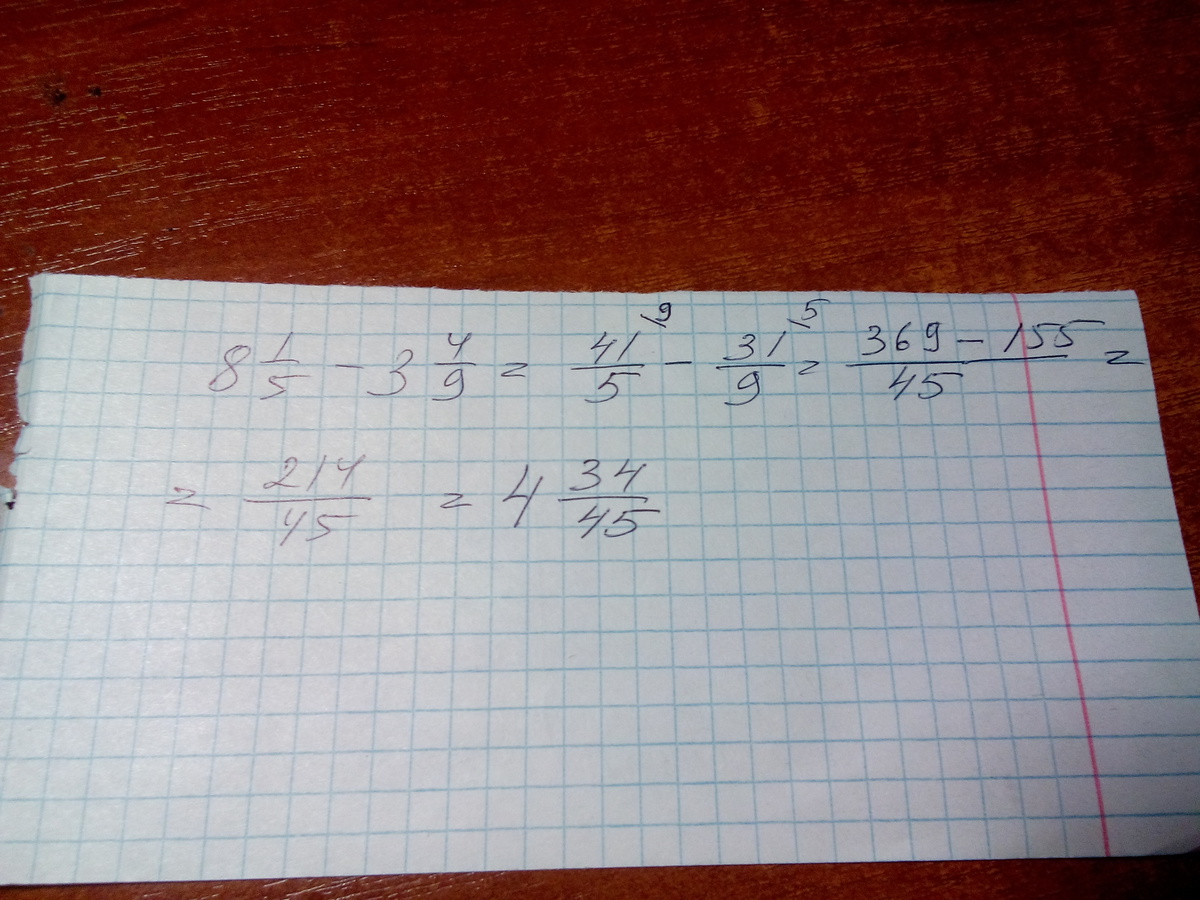 8 1/5 - 3 4/9 = 41/5 \9 - 31/9 \5 = 369 - 155/45 =
= 214/45 = 4 34/45